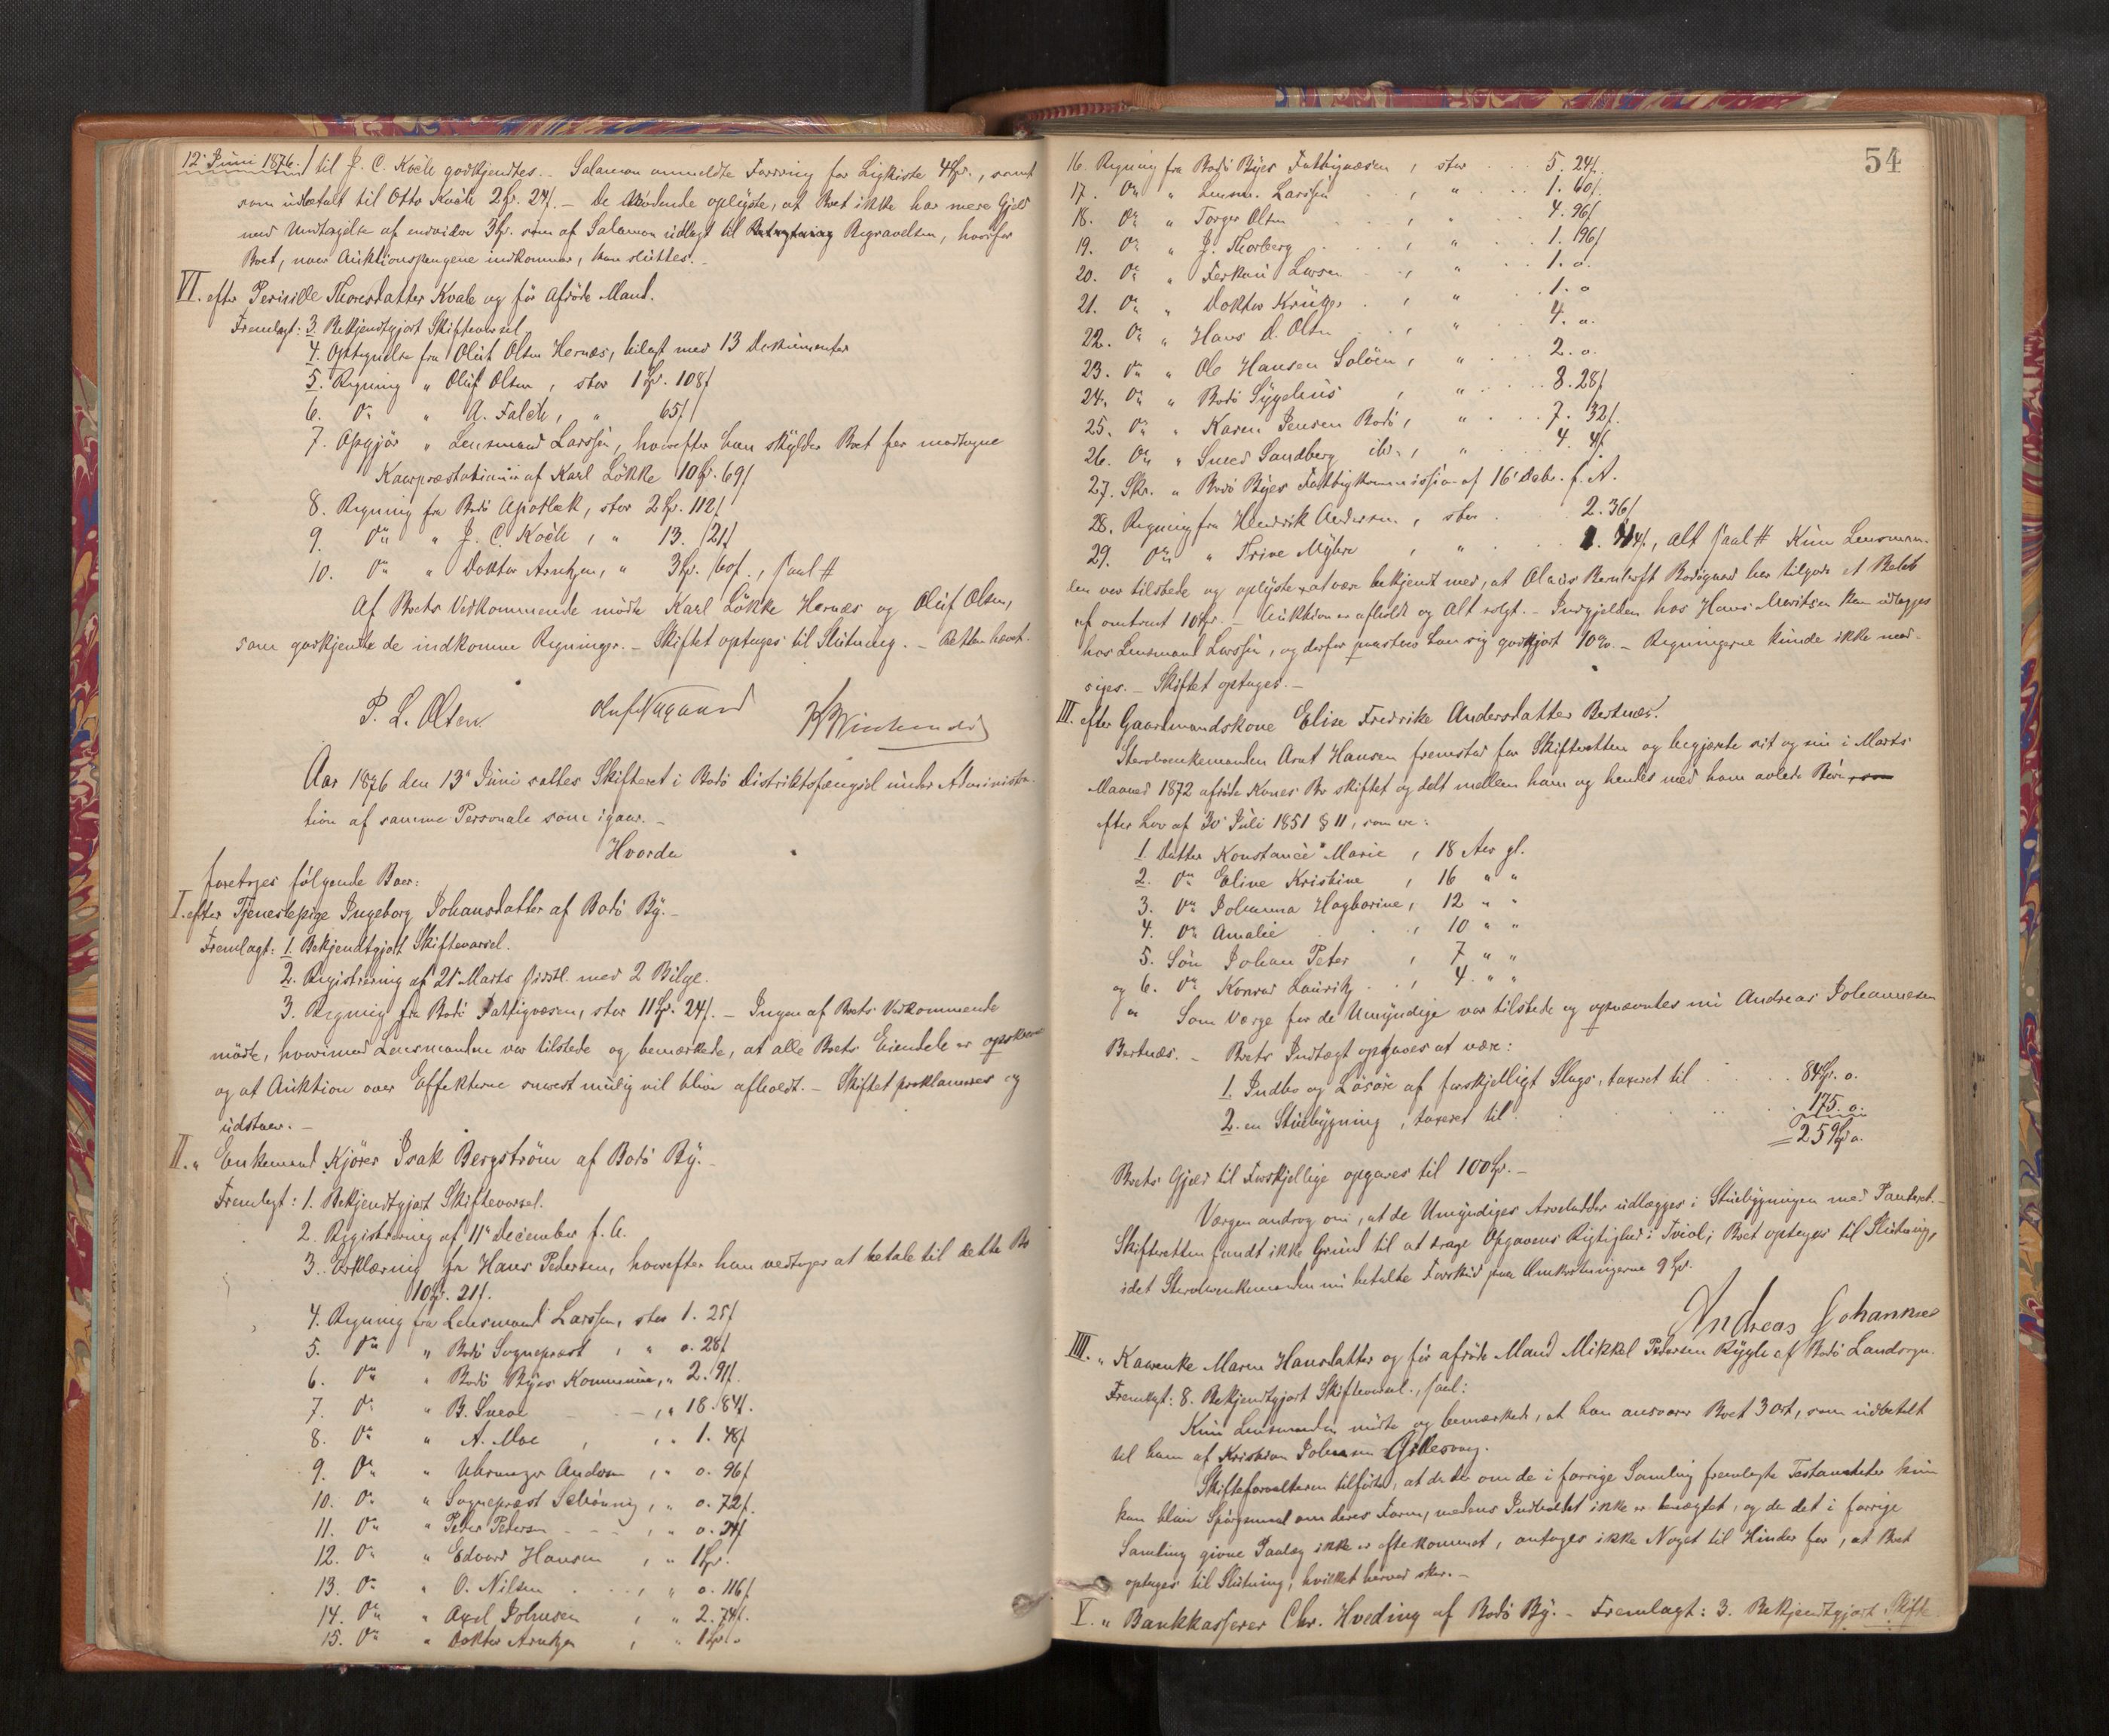 12' Juni 1876. / til J. C. Koch godkjendtes. – Salamon anmeldte Fordring for Ligkiste 4 Spd., samt
som udbetalt til Otto Koch 2 Spd. 24/. – De Mødende oplyste, at Boet ikke har mere Gjæld
med Undtagelse af endvidere 3 Spd. som af Salamon udlagt til Begravelsen, hvorfor
Boet, naar Auktionspengene indkommer, kan sluttes. –
VI. efter Pernille Thoresdatter Kvale og før afdøde Mand.
Fremlagt: 3. Bekjendtgjort Skiftevarsel
4. Optegnelse fra Oluf Olsen Hernæs, bilagt med 13 Dokumenter
5. Regning " Oluf Olsen, stor 1 Spd. 108/
6. Do " A. Falch, " 65/
7. Opgjør " Lensmand Larssen, hvorefter han skylder Boet for modtagne
Kaarpræstationer af Karl Løkke 10 Spd. 69/
8. Regning fra Bodø Apothek, stor 2 Spd. 112/
9. Do " J. C. Koch, " 13. /21/
10. Do " Doktor Arntzen, " 3 Spd. /60/., saal #
Af Boets Vedkommende mødte Karl Løkke Hernæs og Oluf Olsen,
som godkjendte de indkomne Regninger. – Skiftet optages til Slutning. – Retten hævet.
P. L. Olsen
Aar 1876 den 13' Juni sattes Skifteret i Bodø Distriktsfængsel under Administra-
tion af samme Personale som igaar. –
Hvorda
foretoges følgende Boer:
I. efter Tjenestepige Ingeborg Johansdatter af Bodø By. –
Fremlagt: 1. Bekjendtgjort Skiftevarsel.
2. Registrering af 21' Marts sidstl. med 2 Bilage.
3. Regning fra Bodø Fattigvæsen, stor 11 Spd. 24/. – Ingen af Boets Vedkommende
mødte, hvorimod Lensmanden var tilstede og bemærkede, at alle Boets Eiendele er opskrevne
og at Auktion over Effekterne snarest mulig vil blive afholdt. – Skiftet proklameres og
udstaar. –
II. " Enkemand Kjører Isak Bergstrøm af Bodø By. –
Fremlagt: 1. Bekjendtgjort Skiftevarsel.
2. Registrering af 11' December f. A.
3. Erklæring fra Hans Pedersen, hvorefter han vedtager at betale til dette Bo
10 Spd. 21/.
4. Regning fra Lensmand Larssen, stor 1. 25/
5. Do " Bodø Sognepræst, " 0. 28/
6. Do " Bodø Byes Kommune, " 2. 91/.
7. Do " B. Sneve – – , " 18. 84/.
8. Do " A. Moe , " 1. 48/
9. Do " Uhrmager Andersen , " 0. 96/
10. Do " Sognepræst Schønning, " 0. 72/.
11. Do " Peder Pedersen – – , " 0. 24/
12. Do " Edvard Hansen , " 1 Spd.
13. Do " O. Nilsen . , " 0. 116/
14. Do " Axel Johnsen , " 2. 74/.
15. Do " Doktor Arntzen , " 1 Spd. "
54
16. Regning fra Bodø Byes Fattigvæsen, stor . . 5. 24/.
17. Do " Lensm. Larssen , " . . 1. 60/.
18. Do " Torger Olsen , " . . 4. 96/
19. Do " J. Thorberg , " . . 1. 96/
20. Do " Larsen , " . . 1. o.
21. Do " Doktor Krüger , " . . 1. o
22. Do " Hans D. Olsen , " . . 4. o.
23. Do " Ole Hansen Soløen, " . . 2. o.
24. Do " Bodø Sygehus , " . . 8. 28/
25. Do " Karen Jensen Bodø, " . . 7. 32/.
26. Do " Smed Sandberg ibd., " . . 4. 4/.
27. Skr. " Bodø Byes Fattigkommission af 16' Decbr. f. A.
28. Regning fra Hendrik Andersen, stor . 2. 36/
29. Do " Trine Myhre , " . 1. 44/., alt saal # Kun Lensman-
den var tilstede og oplyste at være bekjendt med, at Olaus Berntsoft Bodøgaard har tilgode et Beløb
af omtrent 10 Spd. – Auktion er afholdt og Alt solgt. – Indgjælden hos Hans Mauritsen kan udlægges
hos Lensmand Larssen, og derfor paastaar han sig godtgjort 10%. – Regningerne kunde ikke mod-
siges. – Skiftet optages. –
III. efter Gaardmandskone Elise Fredrike Andersdatter Bertnæs.
Storbrænkemanden Arnt Hansen fremstod for Skifteretten og begjærte sit og sin i Marts
Maaned 1872 afdøde Kones Bo skiftet og delt mellem ham og hendes med ham avlede Børn
efter Lov af 30' Juli 1851 § 11, som ere:
1. Datter Konstance Marie , 18 Aar gl.
2. Do Eline Kristine , 16 " "
3. Do Johanna Hagbarine, 12 " "
4. Do Amalie . . , 10 " "
5. Søn Johan Peter , 7 " "
og 6. Do Konrad Lauritz . . , 4 " "
" Som Værge for de Umyndige var tilstede og opnævntes nu Andreas Johannesen
Bertnæs. – Boets Indtægt opgaves at være:
1. Indbo og Løsøre af forskjelligt Slags, taxeret til . . 84 Spd. o.
2. en Stuebygning, taxeret til . . 175. o.
= 259 Spd. o.
Boets Gjæld til Forskjellige opgaves til 100 Spd. –
Værgen androg om, at de Umyndiges Arvelodder udlægges i Stuebygningen med Panteret. –
Skifteretten fandt ikke Grund til at drage Opgavens Rigtighed i Tvivl; Boet optages til Slutning,
idet Storbrænkemanden nu betalte Forskud paa Omkostningerne 9 Spd.
Andreas Johannes
IIII. " Kaarenke Maren Hansdatter og før afdøde Mand Mikkel Pedersen Rygh af Bodø Landsogn.
Fremlagt: 8. Bekjendtgjort Skiftevarsel., saal:
Kun Lensmanden mødte og bemærkede, at han ansvarer Boet 3 Ort, som udbetalt
til ham af Kristian Johnsen Gillesvaag.
Skifteforvalteren tilføied, at da der om de i forrige Samling fremlagte Testamenter kun
kan blive Spørgsmaal om deres Form, medens Indholdet ikke er benægtet, og da det i forrige
Samling givne Paalæg ikke er efterkommet, antages ikke Noget til Hinder for, at Boet
optages til Slutning, hvilket herved sker. –
V. " Bankkasserer Chr. Hveding af Bodø By. – Fremlagt: 3. Bekjendtgjort Skifte